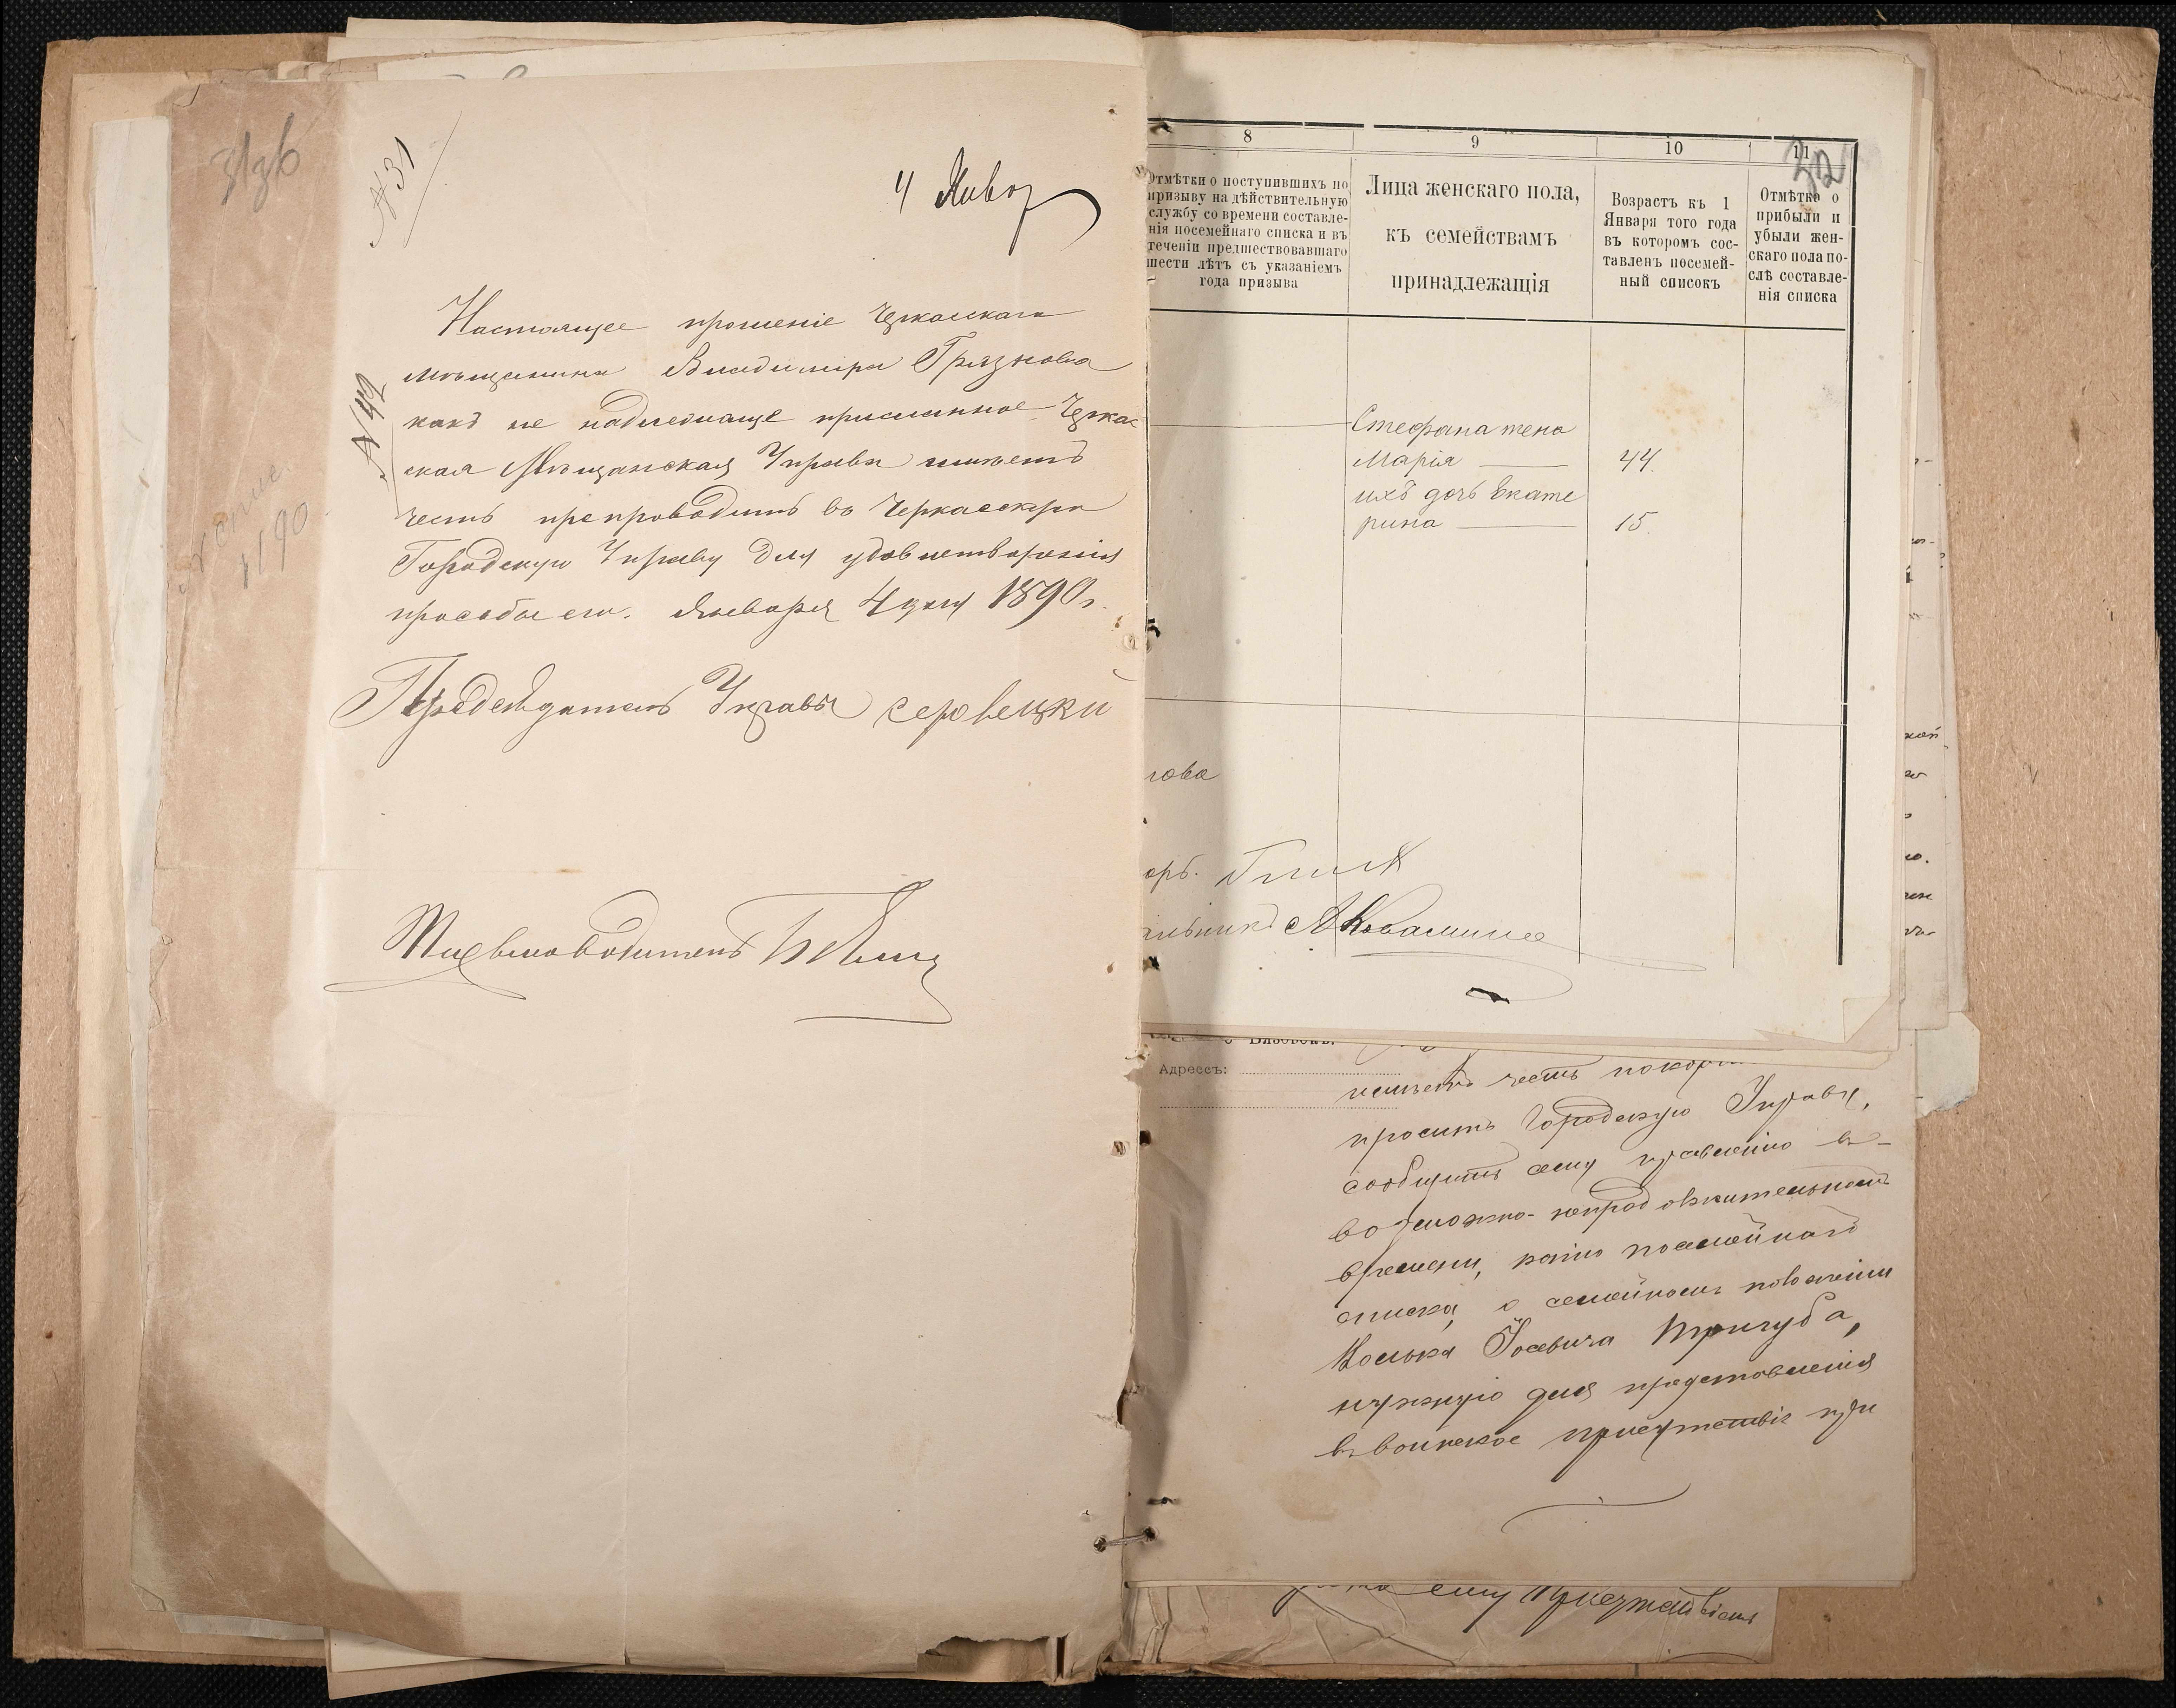 31зв
№ 31
4 Янвор
Настоящее прошеніе Черкаскаго
мѣщанина Владиміра Грязнова
какъ не надлежаще присланное Черка-
ская Мѣщанская Управа имѣетъ
честь препроводить въ Черкасскую
Городскую Управу для удовлетворенія
просьбы его. Января 4 дня 1890 г.
№ 42
Предсѣдатель Управы Серовецкій
Письмоводитель
1190
32
8
9
10
11
Отмѣтки о поступившихъ по
призыву на дѣйствительную
службу со времени составле-
нія посемейнаго списка и въ
теченіи предшествовавшаго
шести лѣтъ съ указаніемъ
года призыва
Лица женскаго пола,
къ семействамъ
принадлежащія
Возрастъ къ 1
Января того года
въ которомъ сос-
тавленъ посемей-
ный списокъ
Отмѣтка о
прибыли и
убыли жен-
скаго пола по-
слѣ составле-
нія списка
Стефана жена
Марія 44.
ихъ дочь Екате
рина 15.
нова
орб.
Адрессъ:
имѣетъ честь покор
просить Городскую Управу,
сообщить сему правленію въ
возможно-непродолжительномъ
времени, копію посемейнаго
списка, о семейномъ положеніи
Іосевича Тригуба,
нужную для представленія
въ воинское присутствіе при
ему присутствіемъ